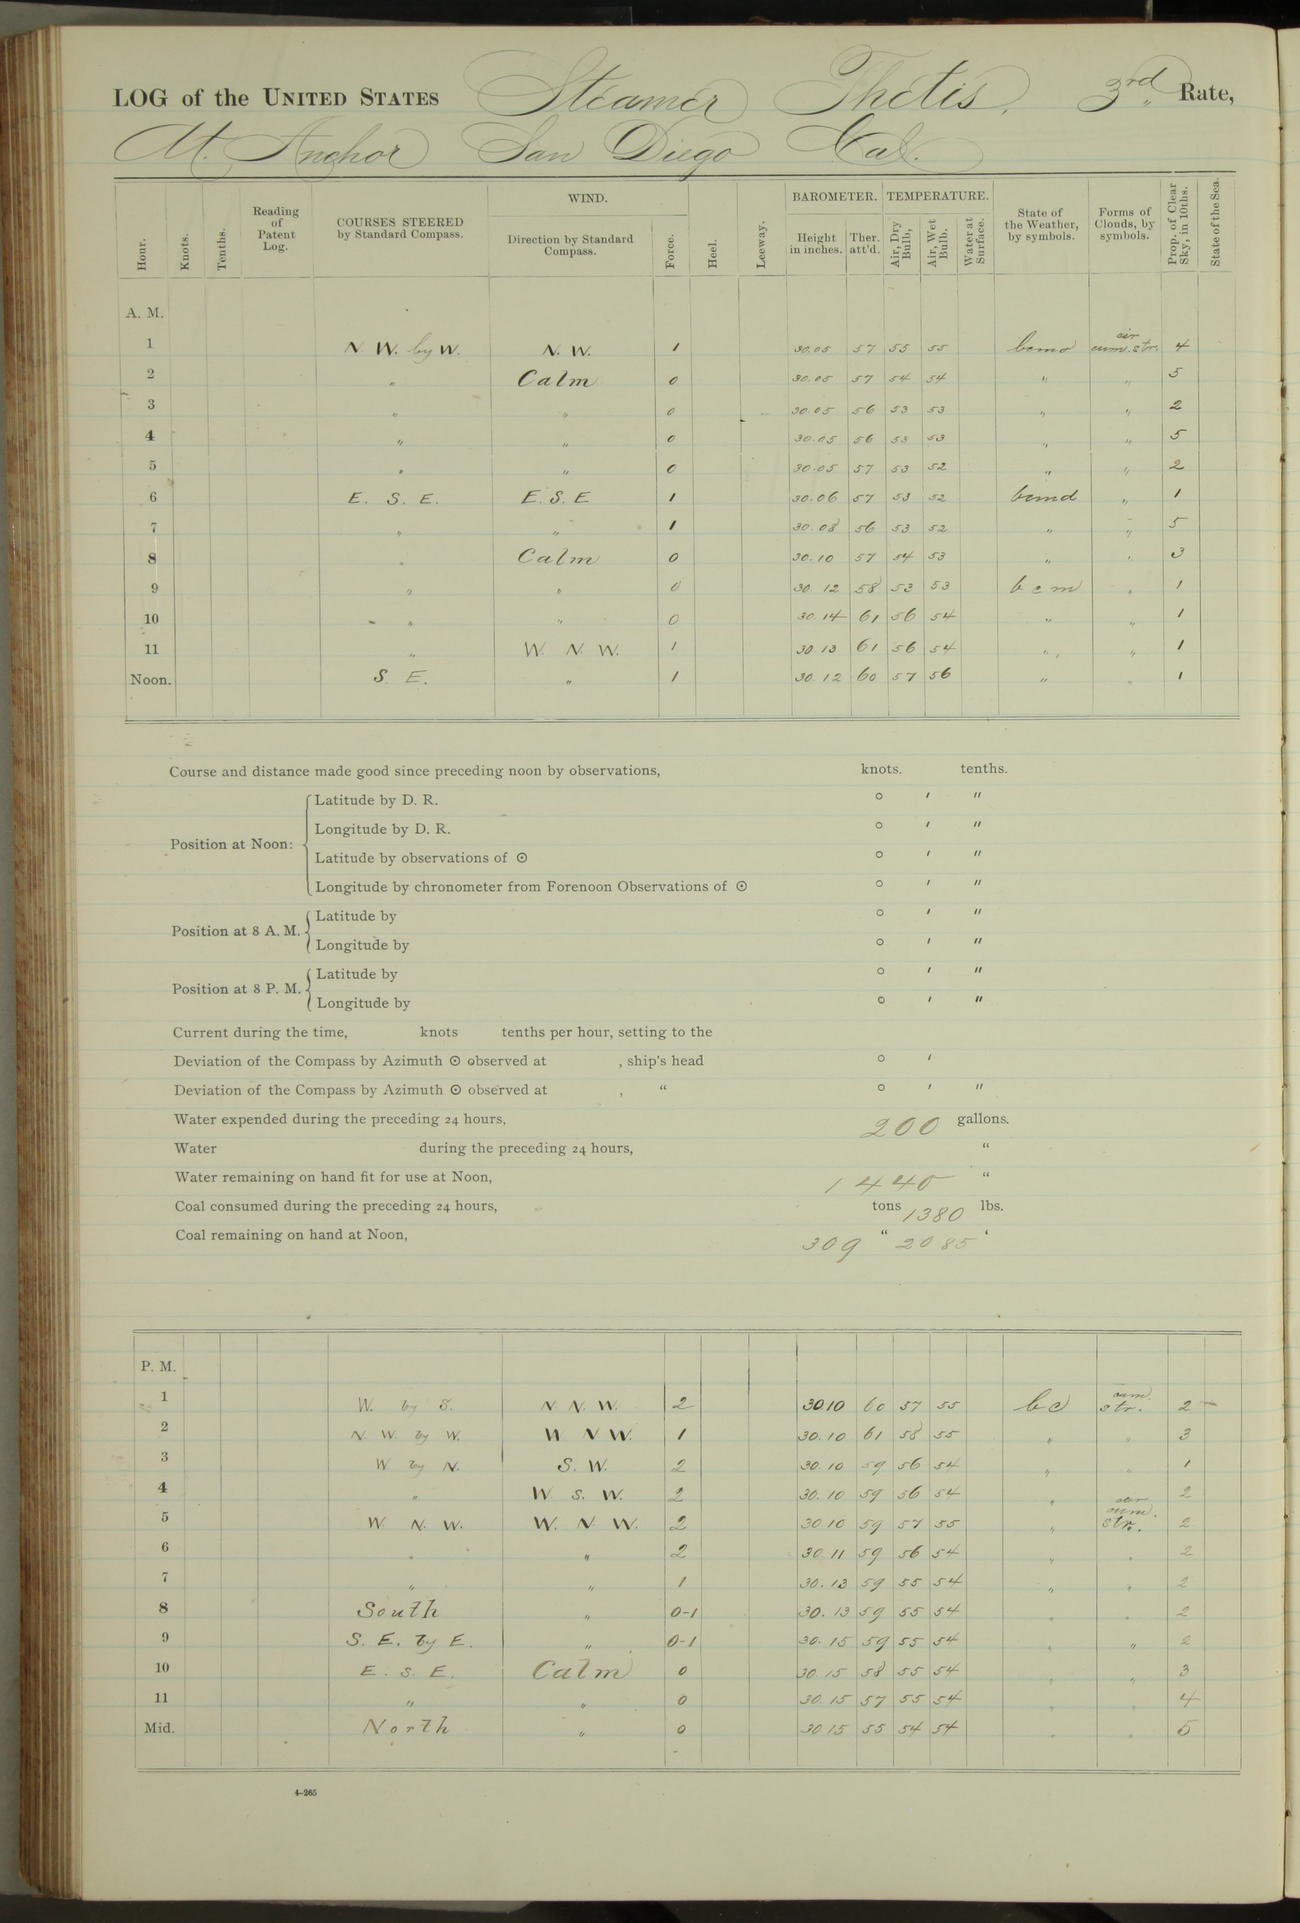 LOG of the UNITED STATES Steamer Thetis, 3rd Rate,
At Anchor San Diego Cal.
Hour. Knots. Tenths. Reading of Patent Log. COURSES STEERED by Standard Compass. WIND. Direction by Standard Compass. Force. Heel. Leeway. BAROMETER. Height in inches. Ther. att'd. TEMPERATURE. Air, Dry Bulb, Air, Wet Bulb. Water at Surface. State of the Weather, by symbols. Forms of Clouds, by symbols. Prop. of Clear Sky, in 10ths. State of the Sea.
A. M.
1 N. W. by W. N. W. 1 30.05 57 55 55 bcmd cir cum. str. 4
2 " Calm 0 30.05 57 54 54 " " 5
3 " " 0 30.05 56 53 53 " " 2
4 " " 0 30.05 56 53 53 " " 5
5 " " 0 30.05 57 53 52 " " 2
6 E. S. E. E. S. E 1 30.06 57 53 52 bcmd " 1
7 " " 1 30.08 56 53 52 " " 5
8 " Calm 0 30.10 57 54 53 " " 3
9 " " 0 30.12 58 53 53 b c m " 1
10 " " 0 30.14 61 56 54 " " 1
11 " W. N. W. 1 30 13 61 56 54 " " 1
Noon. S. E. " 1 30.12 60 57 56 " " 1
Course and distance made good since preceding noon by observations, knots. tenths.
Position at Noon: Latitude by D. R. ° ′ ″
Longitude by D. R. ° ′ ″
Latitude by observations of ☉ ° ′ ″
Longitude by chronometer from Forenoon Observations of ☉ ° ′ ″
Position at 8 A. M. Latitude by ° ′ ″
Longitude by ° ′ ″
Position at 8 P. M. Latitude by ° ′ ″
Longitude by ° ′ ″
Current during the time, knots tenths per hour, setting to the
Deviation of the Compass by Azimuth ☉ observed at , ship's head ° ′
Deviation of the Compass by Azimuth ☉ observed at , “ ° ′ ″
Water expended during the preceding 24 hours, 200 gallons.
Water during the preceding 24 hours, “
Water remaining on hand fit for use at Noon, 1440 “
Coal consumed during the preceding 24 hours, tons 1380 lbs.
Coal remaining on hand at Noon, 309 “ 2085 ‘
P. M.
1 W. by S. N. N. W. 2 30.10 60 57 55 bc cum. str. 2
2 N. W. by W. W N W. 1 30.10 61 58 55 " " 3
3 W by N. S. W. 2 30.10 59 56 54 " " 1
4 " W. S. W. 2 30.10 59 56 54 " 2
5 W. N. W. W. N. W. 2 30 10 59 57 55 " cum. str. 2
6 " " 2 30.11 59 56 54 " " 2
7 " " 1 30.13 59 55 54 " " 2
8 South " 0-1 30.13 59 55 54 " " 2
9 S. E. by E. " 0-1 30.15 59 55 54 " " 2
10 E. S. E. Calm 0 30.15 58 55 54 " " 3
11 " " 0 30.15 57 55 54 " " 4
Mid. North " 0 30 15 55 54 54 " " 5
4–265